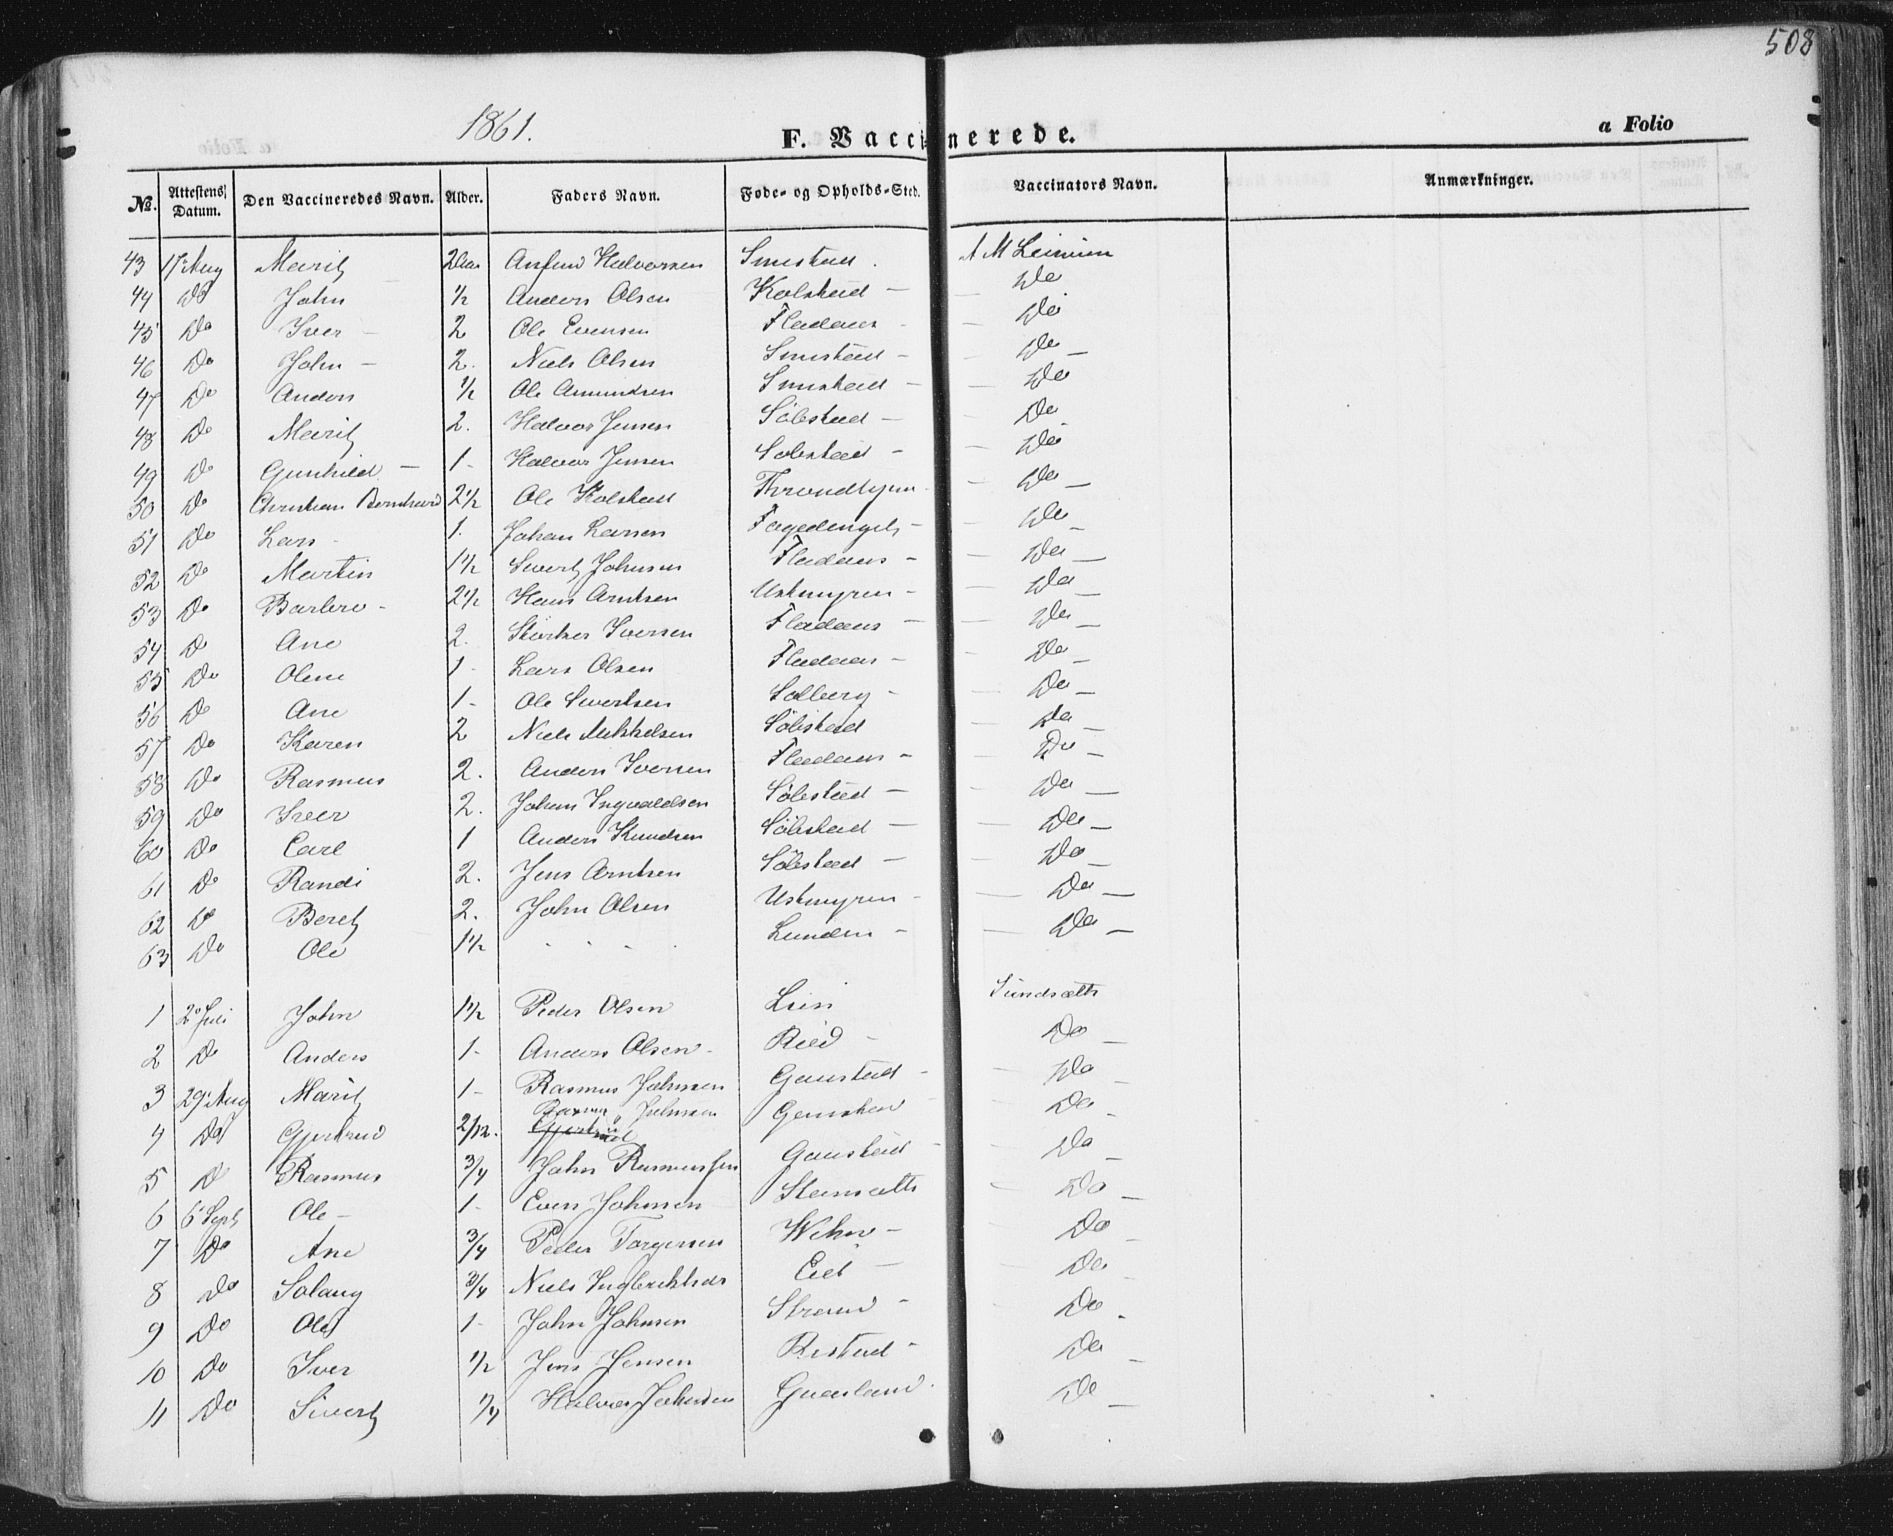 508
1861.
F. Vaccinerede.
a Folio
No. Attestens Datum. Den Vaccineredes Navn. Alder. Faders Navn. Føde- og Opholds-Sted. Vaccinators Navn. Anmærkninger.
43 17 Aug Marit 2 Halvorsen Smestad. A M
44 Do John 1/2 Anders Olsen Kolstad — — Do
45 Do Iver — 2 Ole Evensen Fladaas - — Do
46 Do John — 2. Niels Olsen Smistad — — Do —
47 Do Anders 1/2 Ole Amundsen Smistad — — Do
48 Do Marit 2. Halvor Jensen Sölistad — — Do
49 Do Gunhild — 1- Halvor Jensen Solistad — — Do
50 Do Christian Bernhard 2 1/2 Ole Kolstad Throndhjem - — Do —
51 Do Lars - 1. Johan Larsen — Do -
52 Do Martin 1 1/2 Sivert Johnsen Fladaas - — Do —
53 Do Barbro - 2 1/2 Hans Arntsen Ustmyren — — Do —
54 Do Ane 2. Iversen Fladaas — — Do —
55 Do Oline 1- Lars Olsen Fladaas — — Do —
56 Do Ane 1- Ole Sivertsen Solberg — — Do —
57 Do Karen 2 Niels Mikkelsen Sölistad — Do —
58 Do Rasmus 2. Anders Iversen Fladaas — — Do —
59 Do Iver 2. Johan Ingvaldsen Sölistad — — Do —
60 Do Carl 1 Anders Knudsen Sölistad — — Do —
61 Do Randi 2. Jens Arntsen Sölistad — — Do —
62 Do Beret 2. John Olsen Ustmyren - — Do —
63 Do Ole 1 1/2 - - - - Lunden — — Do —
1 20 Juli John 1 1/2 Peder Olsen Lein Sundsæth
2 Do Anders 1- Anders Olsen - - Do —
3 29 Aug Marit 1- Rasmus Johnsen Gaustad — Do —
4 Do Gjertrud 2/12. Rasmus Johnsen Do -
5 Do Rasmus 3/4 John Rasmussen Gaustad — Do —
6 6 Sept Ole — 1- Even Johnsen Steinsæth Do —
7 Do Ane 3/4 Peder Torgersen Wehn — Do —
8 Do Solaug 3/4 Niels Eid — Do
9 Do Ole 1- John Johnsen Strand — Do -
10 Do Iver 1/2 Jens Jensen Ristad — Do —
11 Do Sivert 1/4 Halvor Johnsen Do —